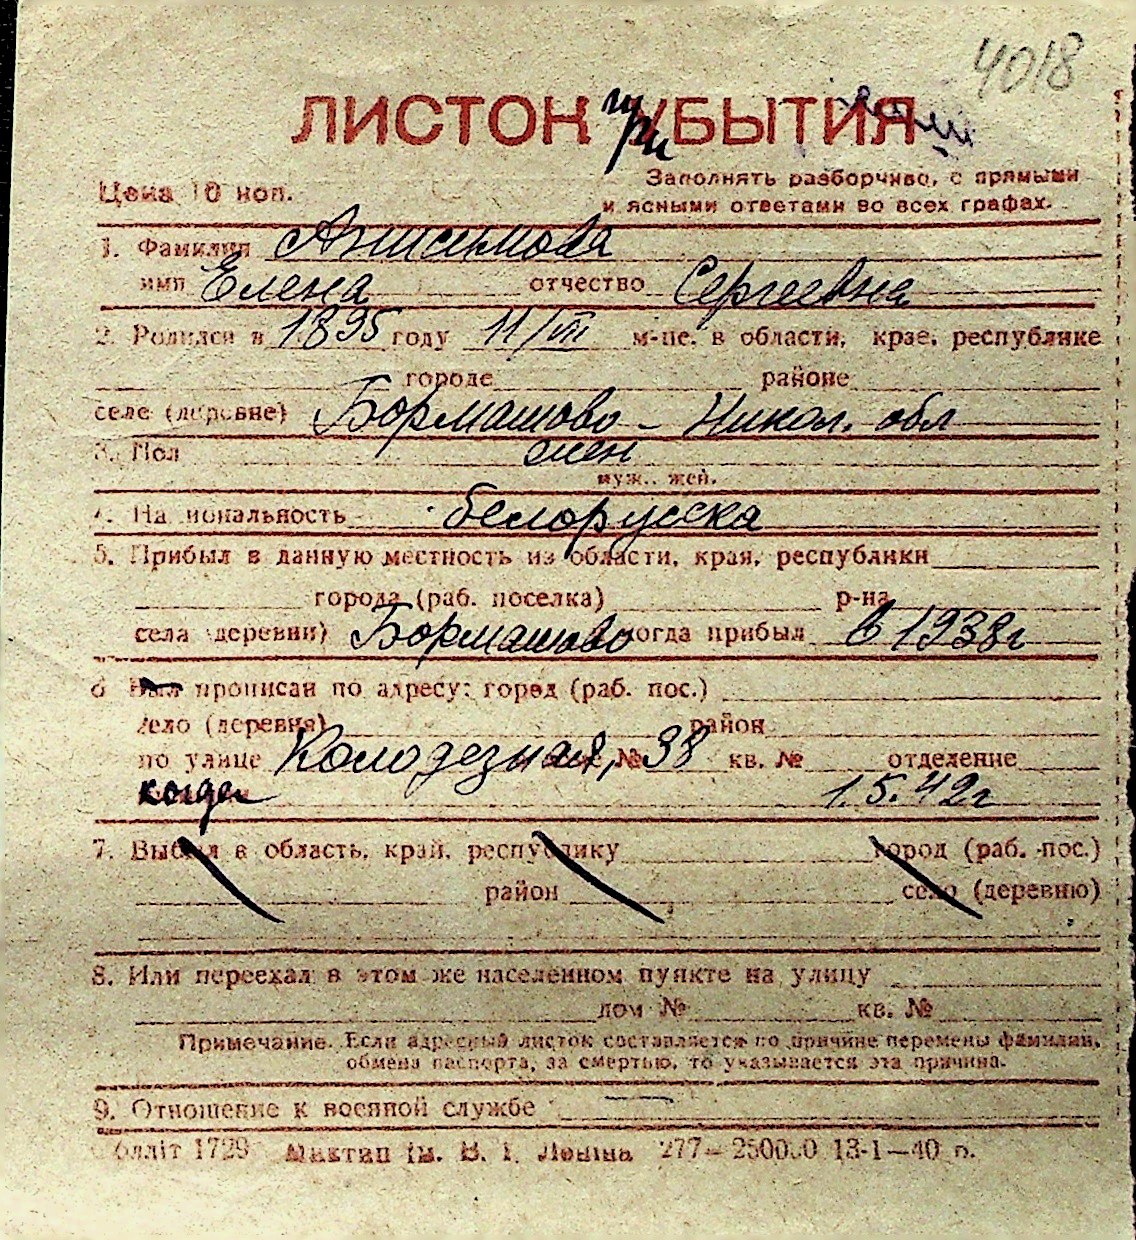 4018
ЛИСТОК при УБЫТИЯ
Цена 10 коп.
Заполнять разборчиво, с прямыми
и ясными ответами во всех графах.
1. Фамилия Анисимова
имя Елена отчество Сергеевна
2. Родился в 1895 году 11/VII м-це, в области, крае, республике
городе районе
селе (деревне) Бормашово - Никол. обл
3. Пол жен
муж., жен.
4. Национальность белорусска
5. Прибыл в данную местность из области, края, республики
города (раб. поселка) р-на
села (деревни) Бормашово когда прибыл в 1938 г
6 Был прописан по адресу: город (раб. пос.)
село (деревня) район
по улице Колодезная, № 38 кв. № отделение
когда 1.5.42 г
7. Выбыл в область, край, республику город (раб. пос.)
район село (деревню)
8. Или переехал в этом же населенном пункте на улицу
дом № кв. №
Примечание. Если адресный листок составляется по причине перемены фамилии,
обмена паспорта, за смертью, то указывается эта причина.
9. Отношение к военной службе —
Облліт 1729 Миктип ім. В. І. Леніна 277— 250000 13-1—40 р.